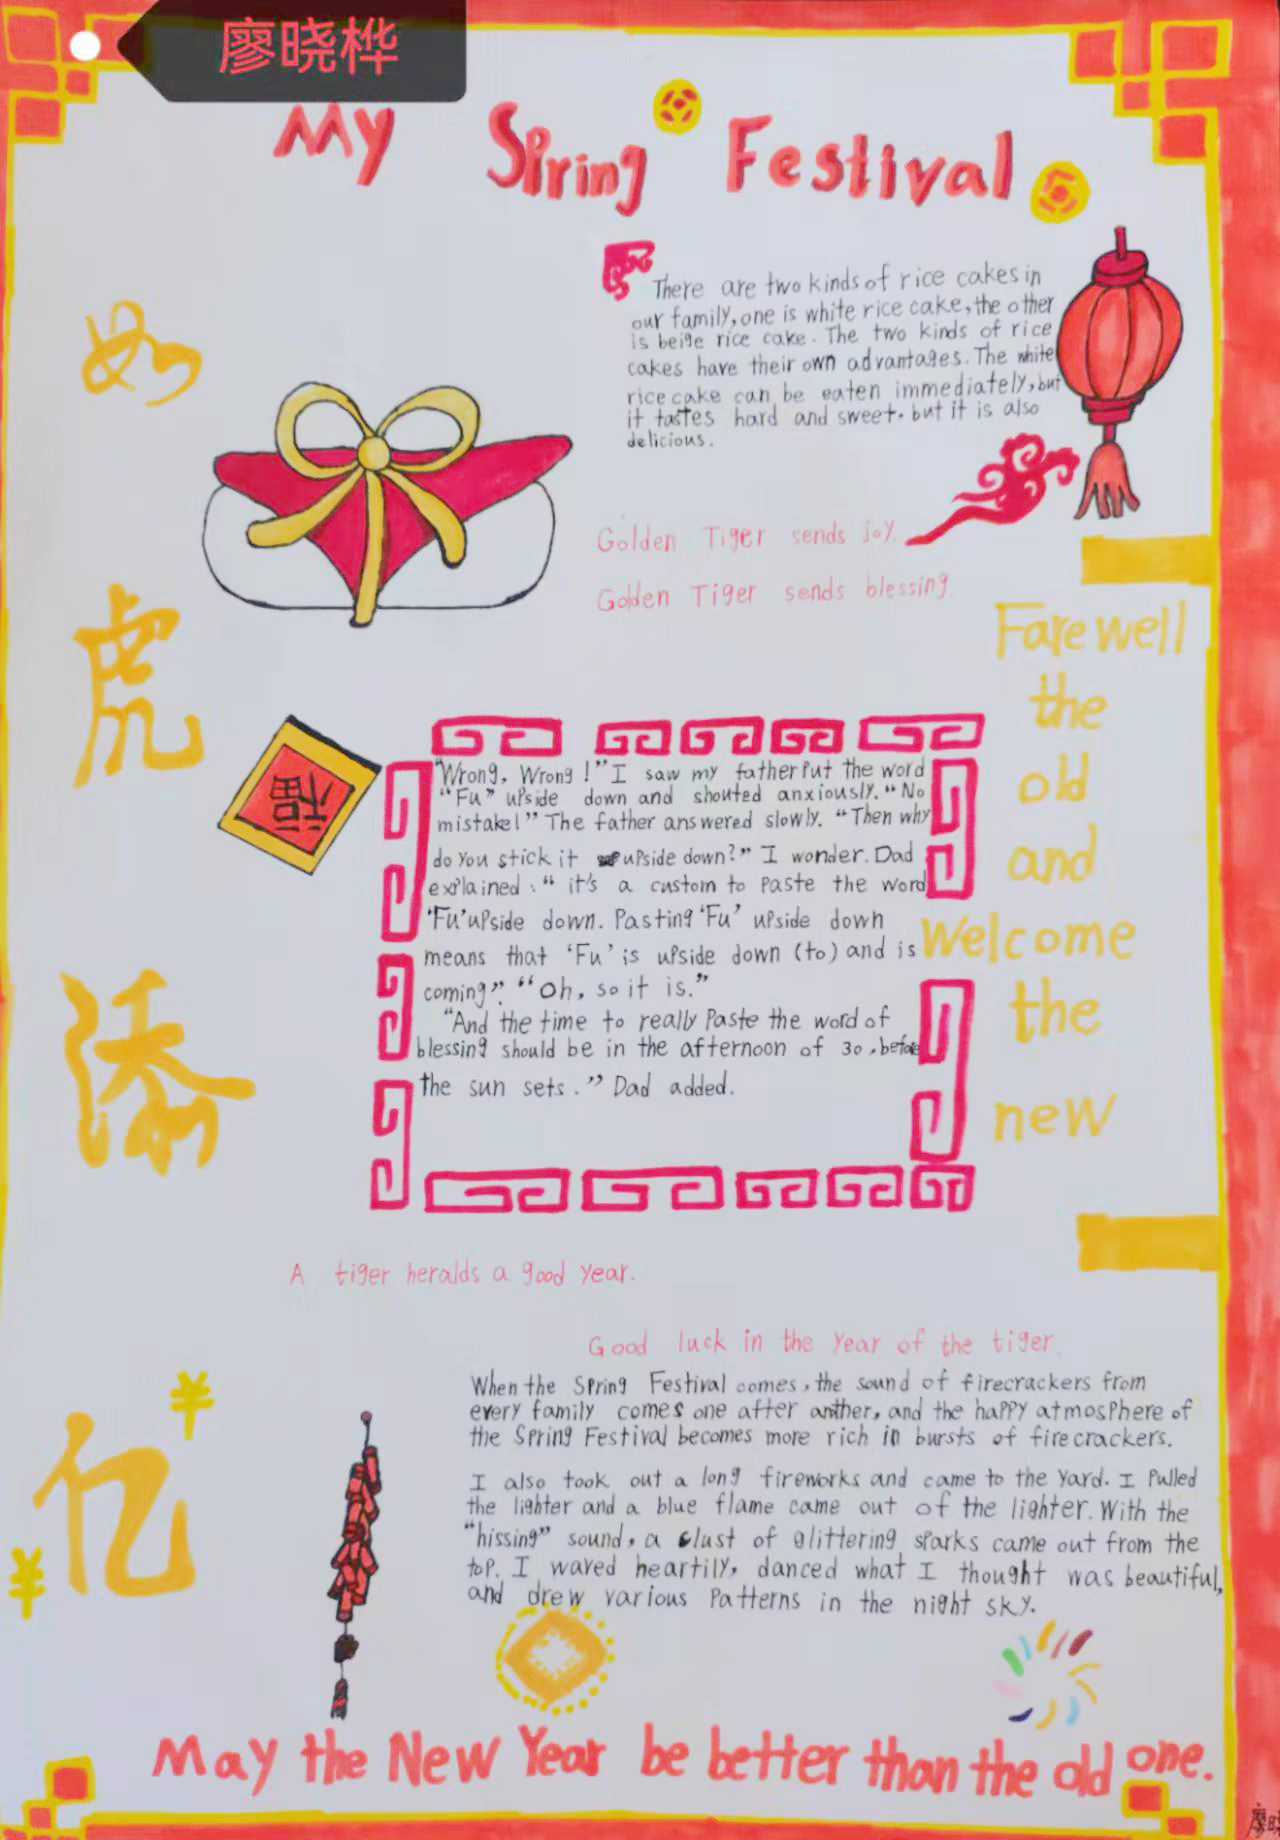 廖晓桦
My Spring Festival
There are two kinds of rice cakes in
our family, one is white rice cake, the other
is beige rice cake. The two kinds of rice
cakes have their own advantages. The white
rice cake can be eaten immediately, but
it tastes hard and sweet. but it is also
delicious.
Golden Tiger sends joy
Golden Tiger sends blessing.
如
虎
添
亿
福
"Wrong, Wrong!" I saw my father Put the word
"Fu" upside down and shouted anxiously. "No
mistake!" The father answered slowly. "Then why
do you stick it upside down?" I wonder. Dad
explained: "it's a custom to Paste the word
'Fu' upside down. Pasting 'Fu' upside down
means that 'Fu' is upside down (to) and is
coming". "Oh, so it is."
"And the time to really Paste the word of
blessing should be in the afternoon of 30, before
the sun sets." Dad added.
Farewell
the
old
and
Welcome
the
new
A tiger heralds a good year.
Good luck in the Year of the tiger.
When the Spring Festival comes, the sound of firecrackers from
every family comes one after anther, and the happy atmosphere of
the Spring Festival becomes more rich in bursts of firecrackers.
I also took out a long fireworks and came to the yard. I Pulled
the lighter and a blue flame came out of the lighter. With the
"hissing" sound, a clust of glittering sparks came out from the
top. I waved heartily, danced what I thought was beautiful,
and drew various Patterns in the night sky.
¥
¥
May the New Year be better than the old one.
廖